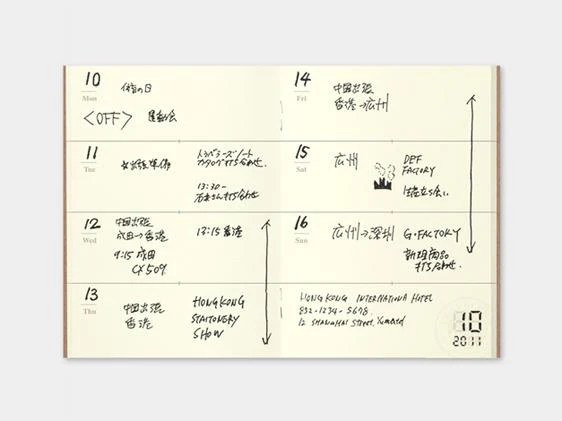 10
Mon
体育の日
<OFF> 運動会
11
Tue
出張準備
トラベラーズノート
カタログ打ち合わせ.
13:30-
石井さん打ち合わせ
12
Wed
中国出張
成田→香港
9:15 成田
CX509
13:15 香港
13
Thu
中国出張
香港
HONGKONG
STATIONERY
SHOW
14
Fri
中国出張
香港→広州
15
Sat
広州
DEF
FACTORY
生産立ち会い
16
Sun
広州→深圳
G・FACTORY
新規商品
打ち合わせ.
HONG KONG INTERNATIONAL HOTEL
852-1234-5678.
12 SHANGHAI Street, Yaumatei
10
2011